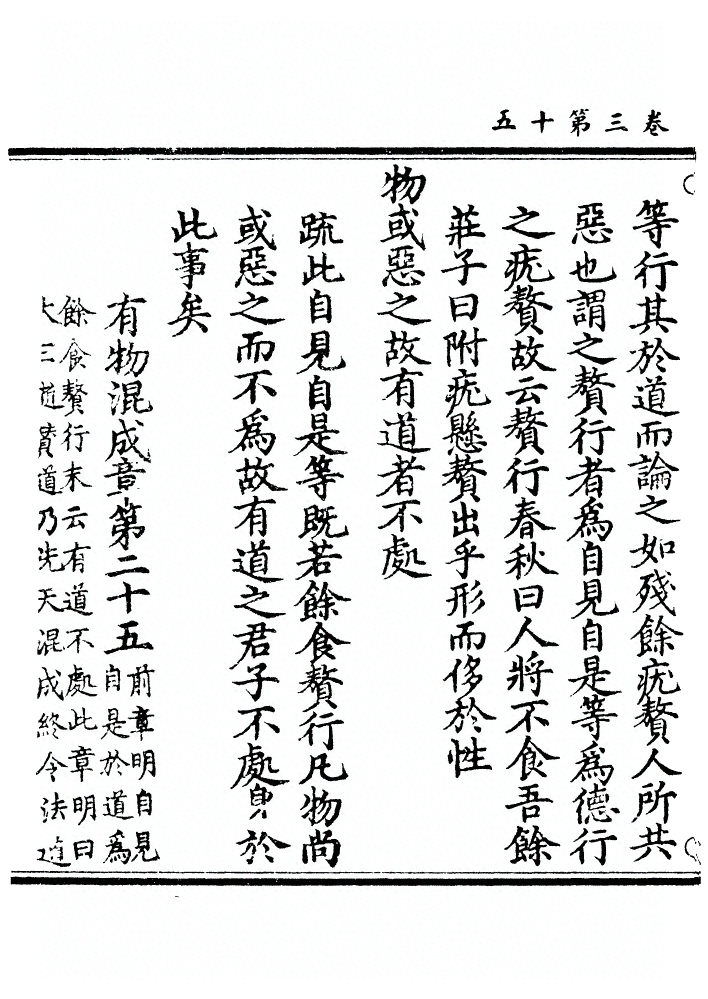 卷三第十五
等行其於道而論之如殘餘疣贅人所共
惡也謂之贅行者為自見自是等為德行
之疣贅故云贅行春秋曰人將不食吾餘
莊子曰附疣懸贅出乎形而侈於性
物或惡之故有道者不處
疏此自見自是等既若餘食贅行凡物尚
或惡之而不為故有道之君子不處身於
此事矣
有物混成章第二十五
前章明自見
自是於道為
餘食贅行末云有道不處此章明曰
大三道貫道乃先天混成終令法道